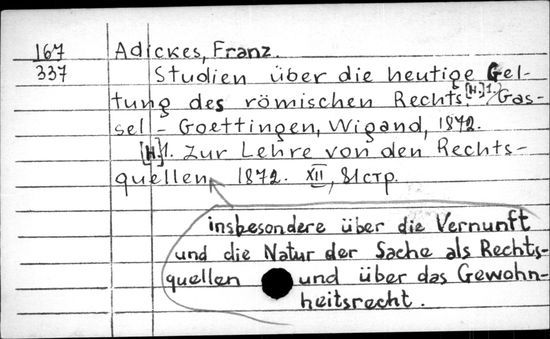 167 Adickes, Franz.
337 Studien über die heutige Gel-
tung des römischen Rechts. [H.] 1. Gas-
sel – Goettingen, Wigand, 1872.
[H] 1. Zur Lehre von den Rechts-
quellen, 1872. XII, 81 стр.
insbesondere über die Vernunft
und die Natur der Sache als Rechts-
quellen und über das Gewohn-
heitsrecht.